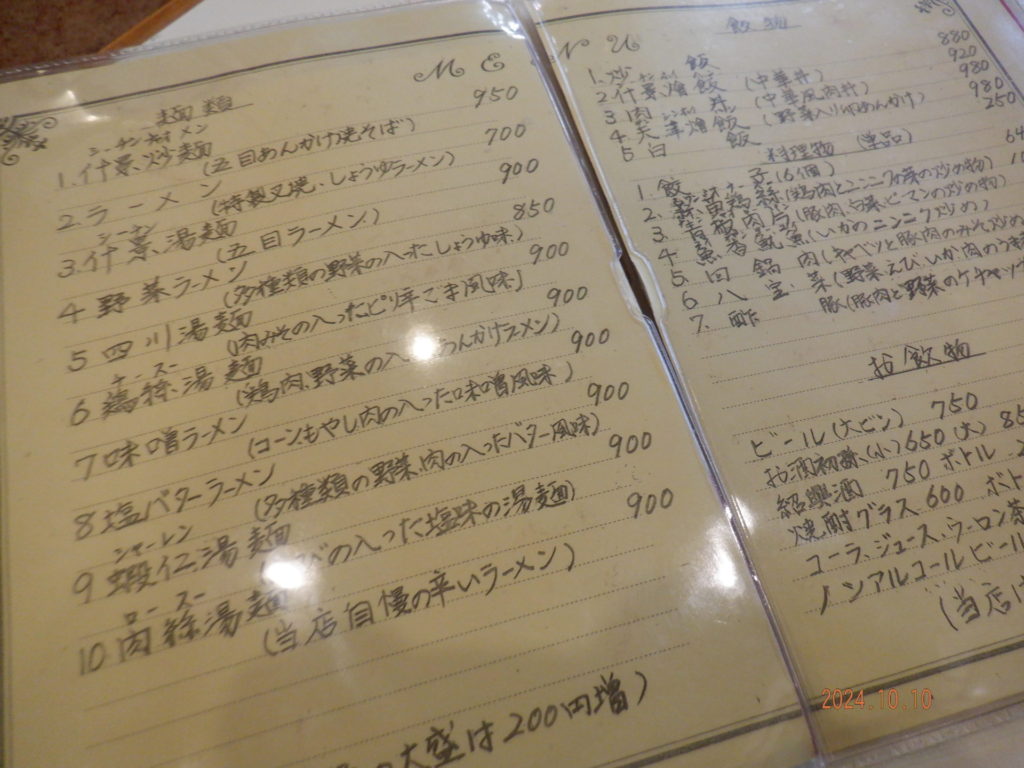 MENU
麺類
シーチンチャオメン
1.什景炒麺 950
(五目あんかけ焼そば)
2.ラーメン 700
(特製叉焼、しょうゆラーメン)
3.什景湯麺 900
(五目ラーメン)
4 野菜ラーメン 850
(多種類の野菜の入ったしょうゆ味)
5 四川湯麺 900
(肉みその入ったピリ辛ごま風味)
チースー
6 鶏絲湯麺 900
(鶏肉、野菜の入ったあんかけラーメン)
7 味噌ラーメン 900
(コーンもやし肉の入った味噌風味)
8 塩バターラーメン 900
(多種類の野菜、肉の入ったバター風味)
シャーレン
9 蝦仁湯麺 900
(えびの入った塩味の湯麺)
ロースー
10 肉絲湯麺 900
(当店自慢の辛いラーメン)
大盛は200円増)
飯物
1.炒飯 880
2.什景燴飯 (中華丼) 920
3 肉丼 (中華風肉丼) 980
4 天津燴飯 (野菜入りあんかけ) 980
5 白飯 250
料理物 (単品)
1 餃子(6個)
(鶏肉とニンニク
3. 青椒肉
4 魚香魷魚(いかのニンニク炒め)
5 回鍋肉(キャベツと豚肉のみそ炒め
6 八宝菜(野菜えびいか肉のうま
7. 酢豚(豚肉と野菜のケチャッ
お飲物
ビール(大ビン) 750
お酒 (小)650(大)
紹興酒 750 ボトル
焼酎グラス 600
コーラ、ジュース、ウーロン茶
ノンアルコールビール
(当店
2024.10.10